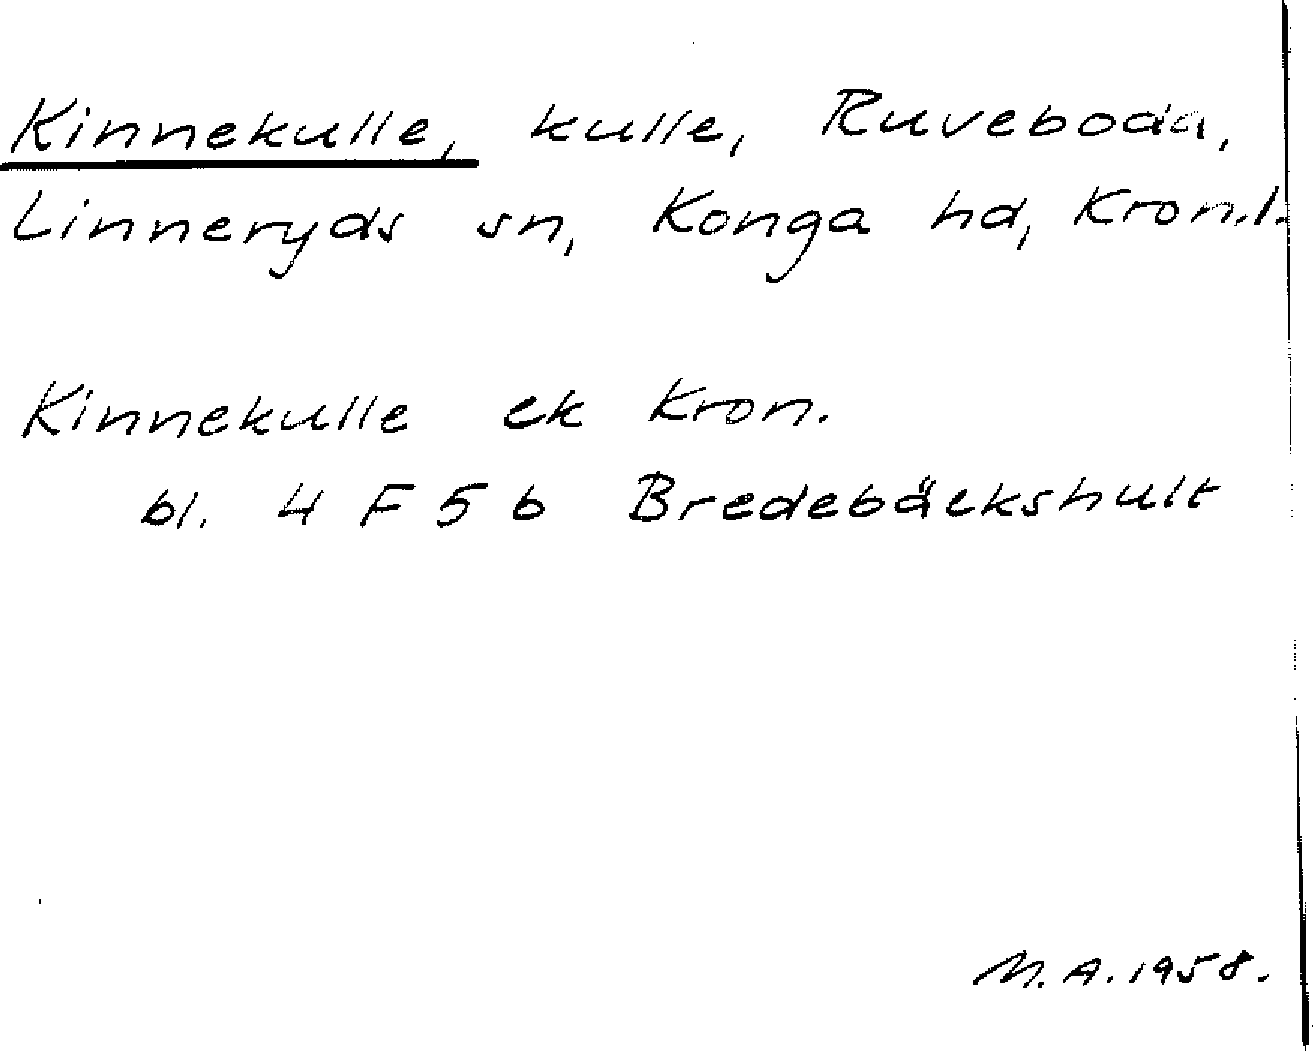 Kinnekulle, kulle, Ruveboda,
Linneryds sn, Konga hd, Kron.l.
Kinnekulle ek Kron.
bl. 4 F 5 b Bredebäckshult
M.A. 1958.